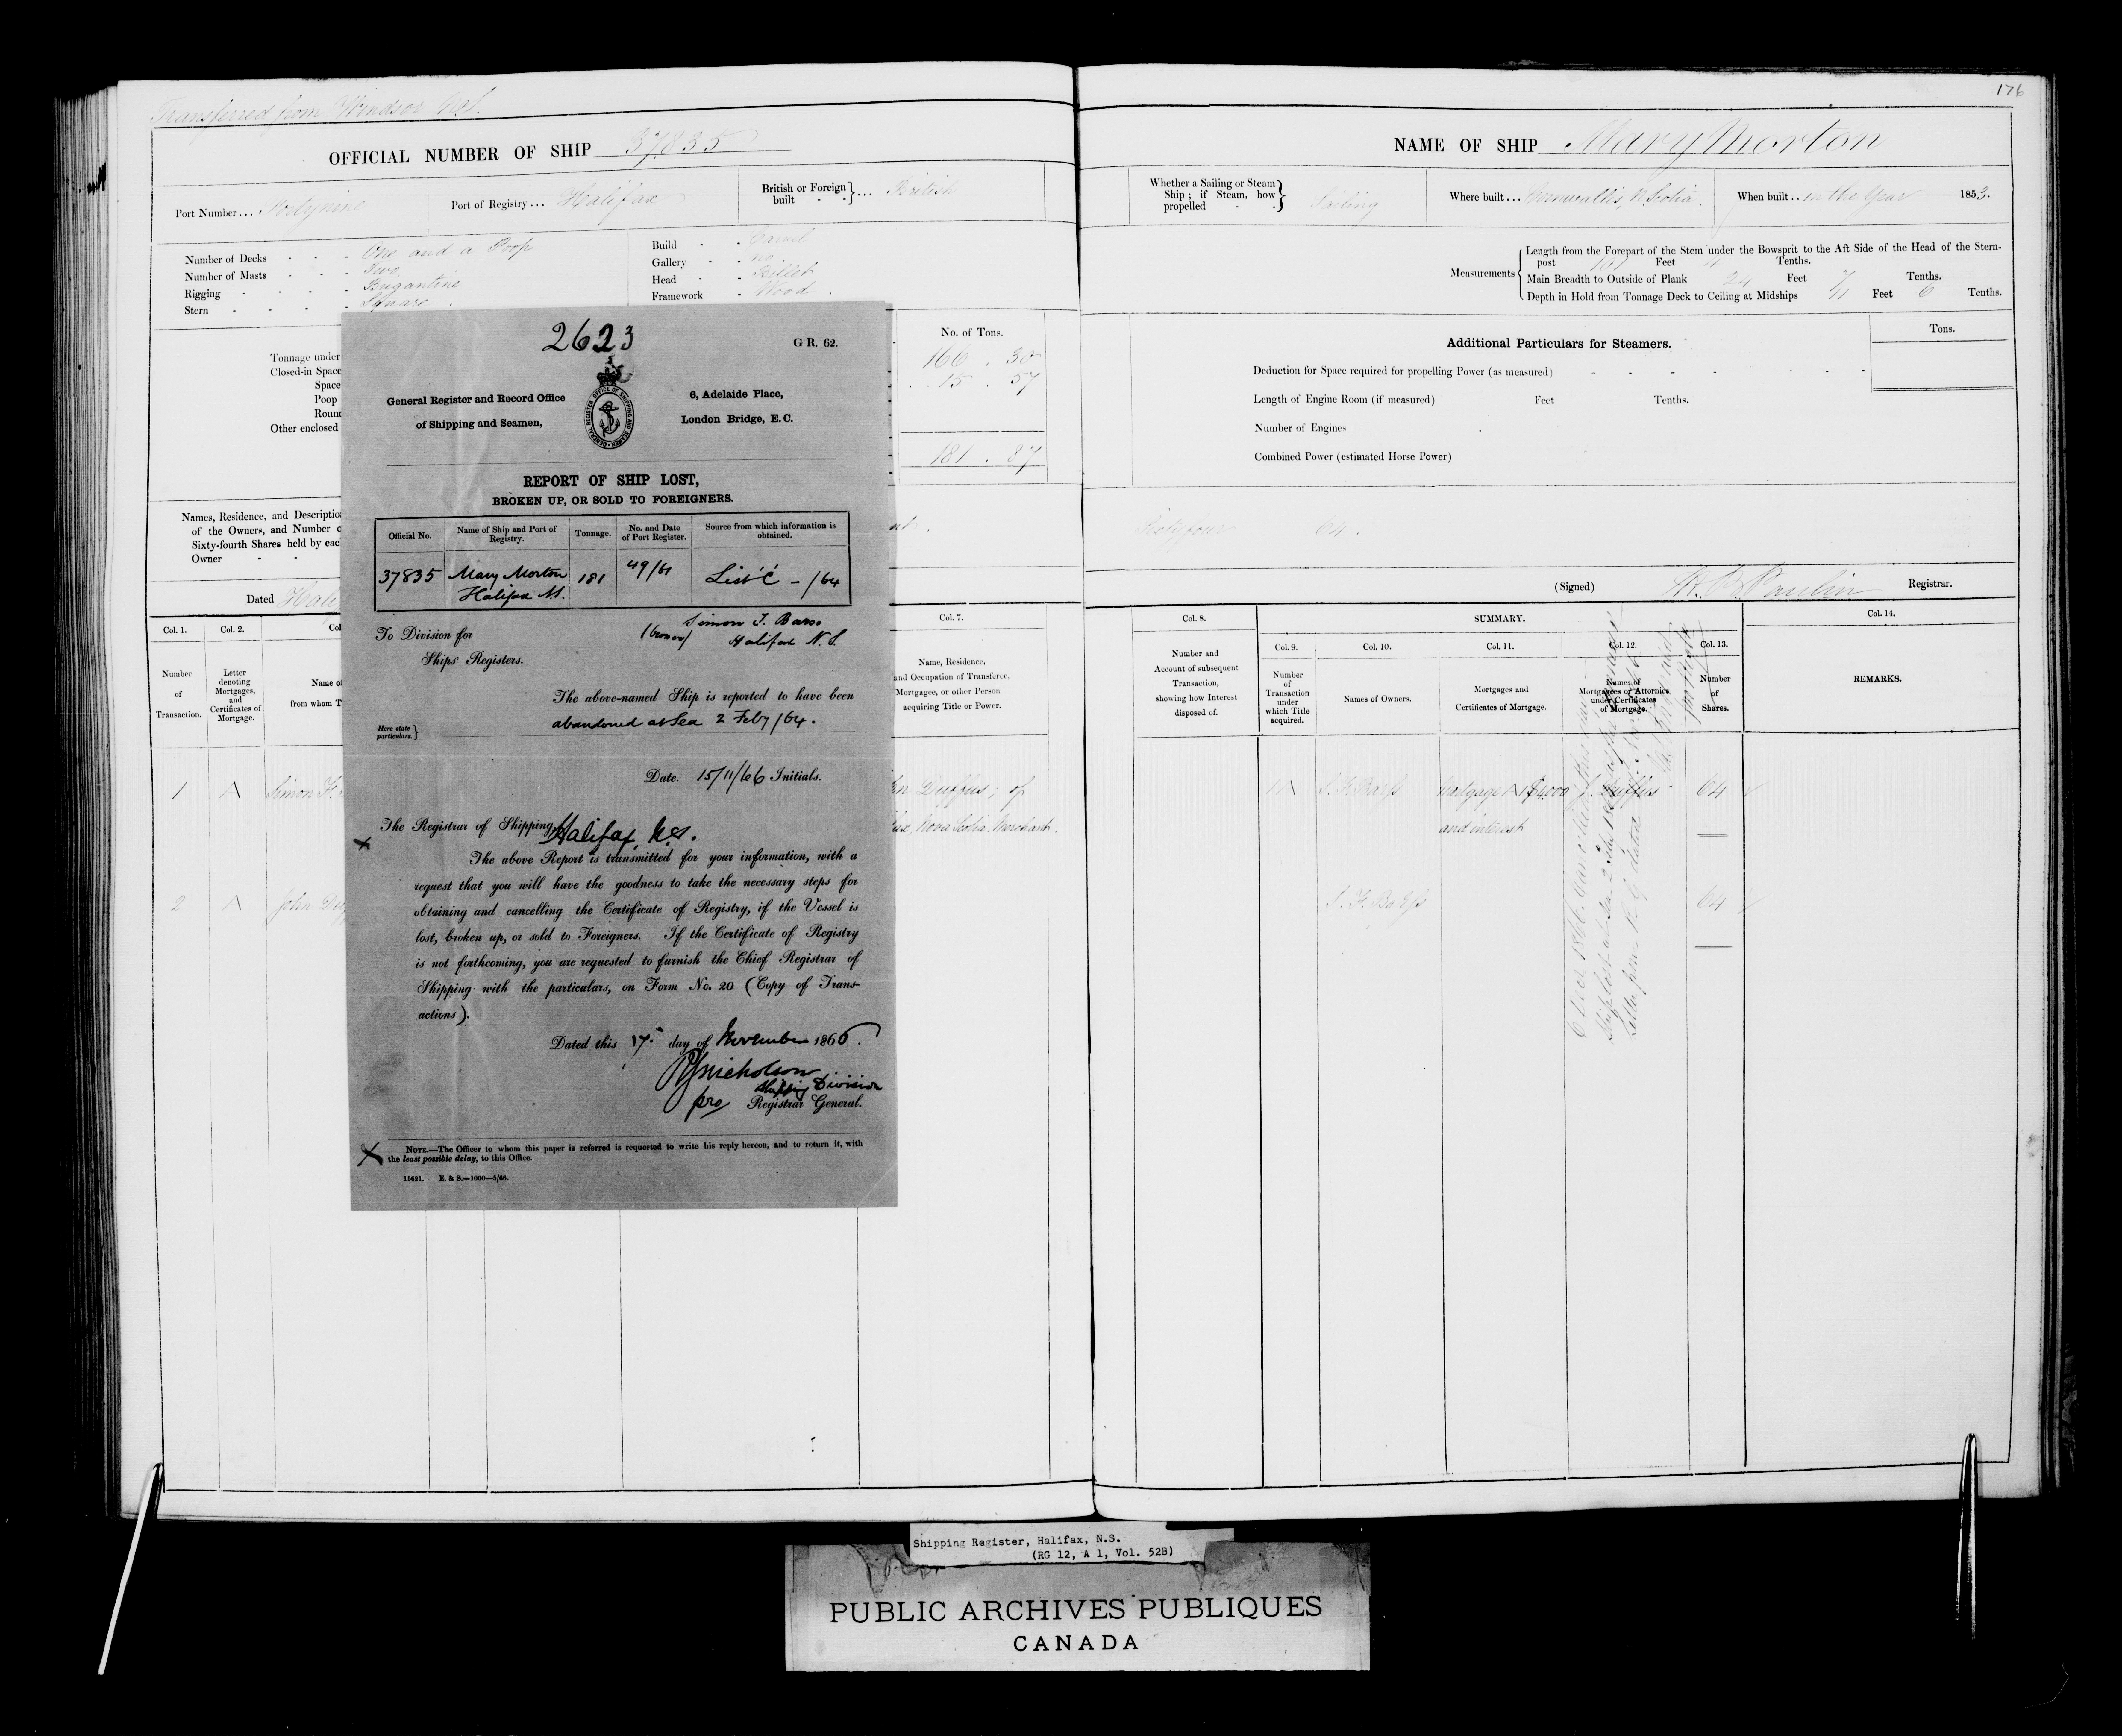 176
Transferred from Windsor N.S.
OFFICIAL NUMBER OF SHIP 37835
Port Number... Fortynine
Port of Registry... Halifax
British or Foreign built - - }... British
Number of Decks - - - One and a Poop
Number of Masts - - - Two
Rigging - - - - Brigantine
Stern - - - - Square
Build - - Carvel
Gallery - - no
Head - - Billet
Framework - Wood
Tonnage under
Closed-in Space
Space
Poop
Round
Other enclosed
No. of Tons.
166 . 30
15 . 57
181 . 87
Names, Residence, and Descriptio
of the Owners, and Number o
Sixty-fourth Shares held by eac
Owner - -
Dated Hali
Col. 1.
Col. 2.
Col
Col. 7.
Number
of
Transaction.
Letter
denoting
Mortgages,
and
Certificates of
Mortgage.
Name of
from whom T
Name, Residence,
and Occupation of Transferee,
Mortgagee, or other Person
acquiring Title or Power.
1 A Simon F.
n Duffus; of
fax, Nova Scotia. Merchant.
2 A John Du
2623
G R. 62.
General Register and Record Office
of Shipping and Seamen,
GENERAL REGISTER OFFICE OF SHIPPING AND SEAMEN
6, Adelaide Place,
London Bridge, E.C.
REPORT OF SHIP LOST,
BROKEN UP, OR SOLD TO FOREIGNERS.
Official No.
Name of Ship and Port of Registry.
Tonnage.
No. and Date of Port Register.
Source from which information is obtained.
37835
Mary Morton
Halifax N.S.
181
49/61
List C - /64
To Division for
Ships' Registers.
(owner) Simon F. Barss
Halifax N.S.
The above-named Ship is reported to have been
abandoned at Sea 2 Feby /64.
Here state
particulars. }
Date. 15/11/66 Initials.
The Registrar of Shipping, Halifax, N.S.
The above Report is transmitted for your information, with a
request that you will have the goodness to take the necessary steps for
obtaining and cancelling the Certificate of Registry, if the Vessel is
lost, broken up, or sold to Foreigners. If the Certificate of Registry
is not forthcoming, you are requested to furnish the Chief Registrar of
Shipping with the particulars, on Form No. 20 (Copy of Trans-
actions).
Dated this 17 day of November 1866.
Nicholson
Shipping Division
pro Registrar General.
NOTE.—The Officer to whom this paper is referred is requested to write his reply hereon, and to return it, with
the least possible delay, to this Office.
15421. E. & S.—1000—5/66.
NAME OF SHIP Mary Morton
Whether a Sailing or Steam
Ship; if Steam, how
propelled - - } Sailing
Where built... Cornwallis, N. Scotia.
When built.. in the Year 1853.
Measurements {
Length from the Forepart of the Stem under the Bowsprit to the Aft Side of the Head of the Stern-
post 101 Feet 4 Tenths.
Main Breadth to Outside of Plank 24 Feet 7 Tenths.
Depth in Hold from Tonnage Deck to Ceiling at Midships 11 Feet 6 Tenths.
Additional Particulars for Steamers.
Tons.
Deduction for Space required for propelling Power (as measured) - - - - - -
Length of Engine Room (if measured) Feet Tenths.
Number of Engines
Combined Power (estimated Horse Power)
Sixtyfour 64.
(Signed) Registrar.
Col. 8.
SUMMARY.
Col. 14.
Number and
Account of subsequent
Transaction,
showing how Interest
disposed of.
Col. 9.
Number
of
Transaction
under
which Title
acquired.
Col. 10.
Names of Owners.
Col. 11.
Mortgages and
Certificates of Mortgage.
Col. 12.
Names of
Mortgagees or Attornies
under Certificates
of Mortgage.
Col. 13.
Number
of
Shares.
REMARKS.
S. F. Barss
Mortgage A $4000
and interest
J. Duffus
64
S. F. Barss
64
Ship lost at sea 2 Feby
Letter from R. G. dated
Shipping Register, Halifax, N.S.
(RG 12, A 1, Vol. 52B)
PUBLIC ARCHIVES PUBLIQUES
CANADA